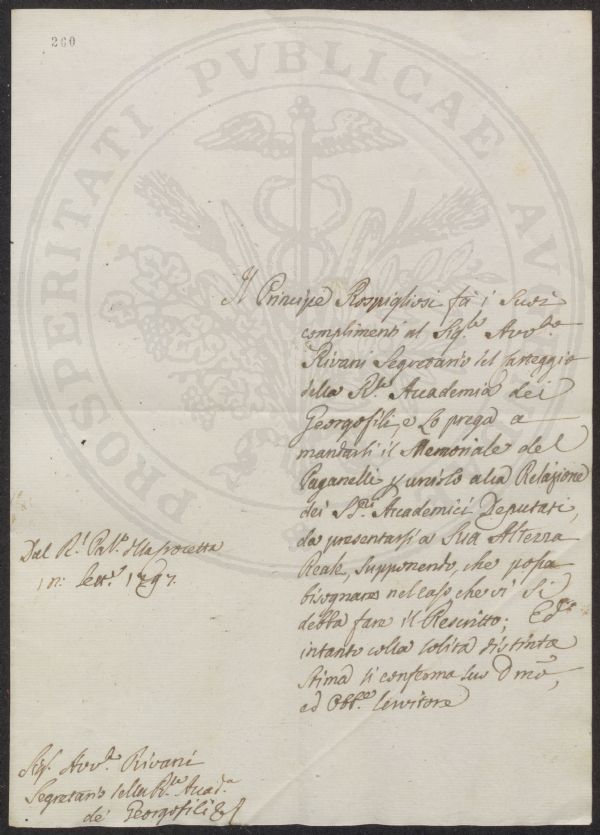 260
PROSPERITATI PVBLICAE AVGENDAE
Il Principe Rospigliosi fà i Suoi
complimenti al Sig.re Avv.to
Rivani Segretario del Carteggio
della R.le Accademia dei
Georgofili, e Lo prega a
mandarli il Memoriale del
Paganelli p unirlo alla Relazione
dei SS.ri Accademici Deputati,
da presentarsi a Sua Altezza
Reale, supponendo, che possa
bisognare nel caso, che vi Si
debba fare il Rescritto; Ed
intanto colla solita distinta
Stima si conferma suo D mo,
ed Obb.e Servitore
Dal R.l Pal.o
1797.
Sig.r Avv.to Rivani
Segretario della R.le Accad.a
de' Georgofili